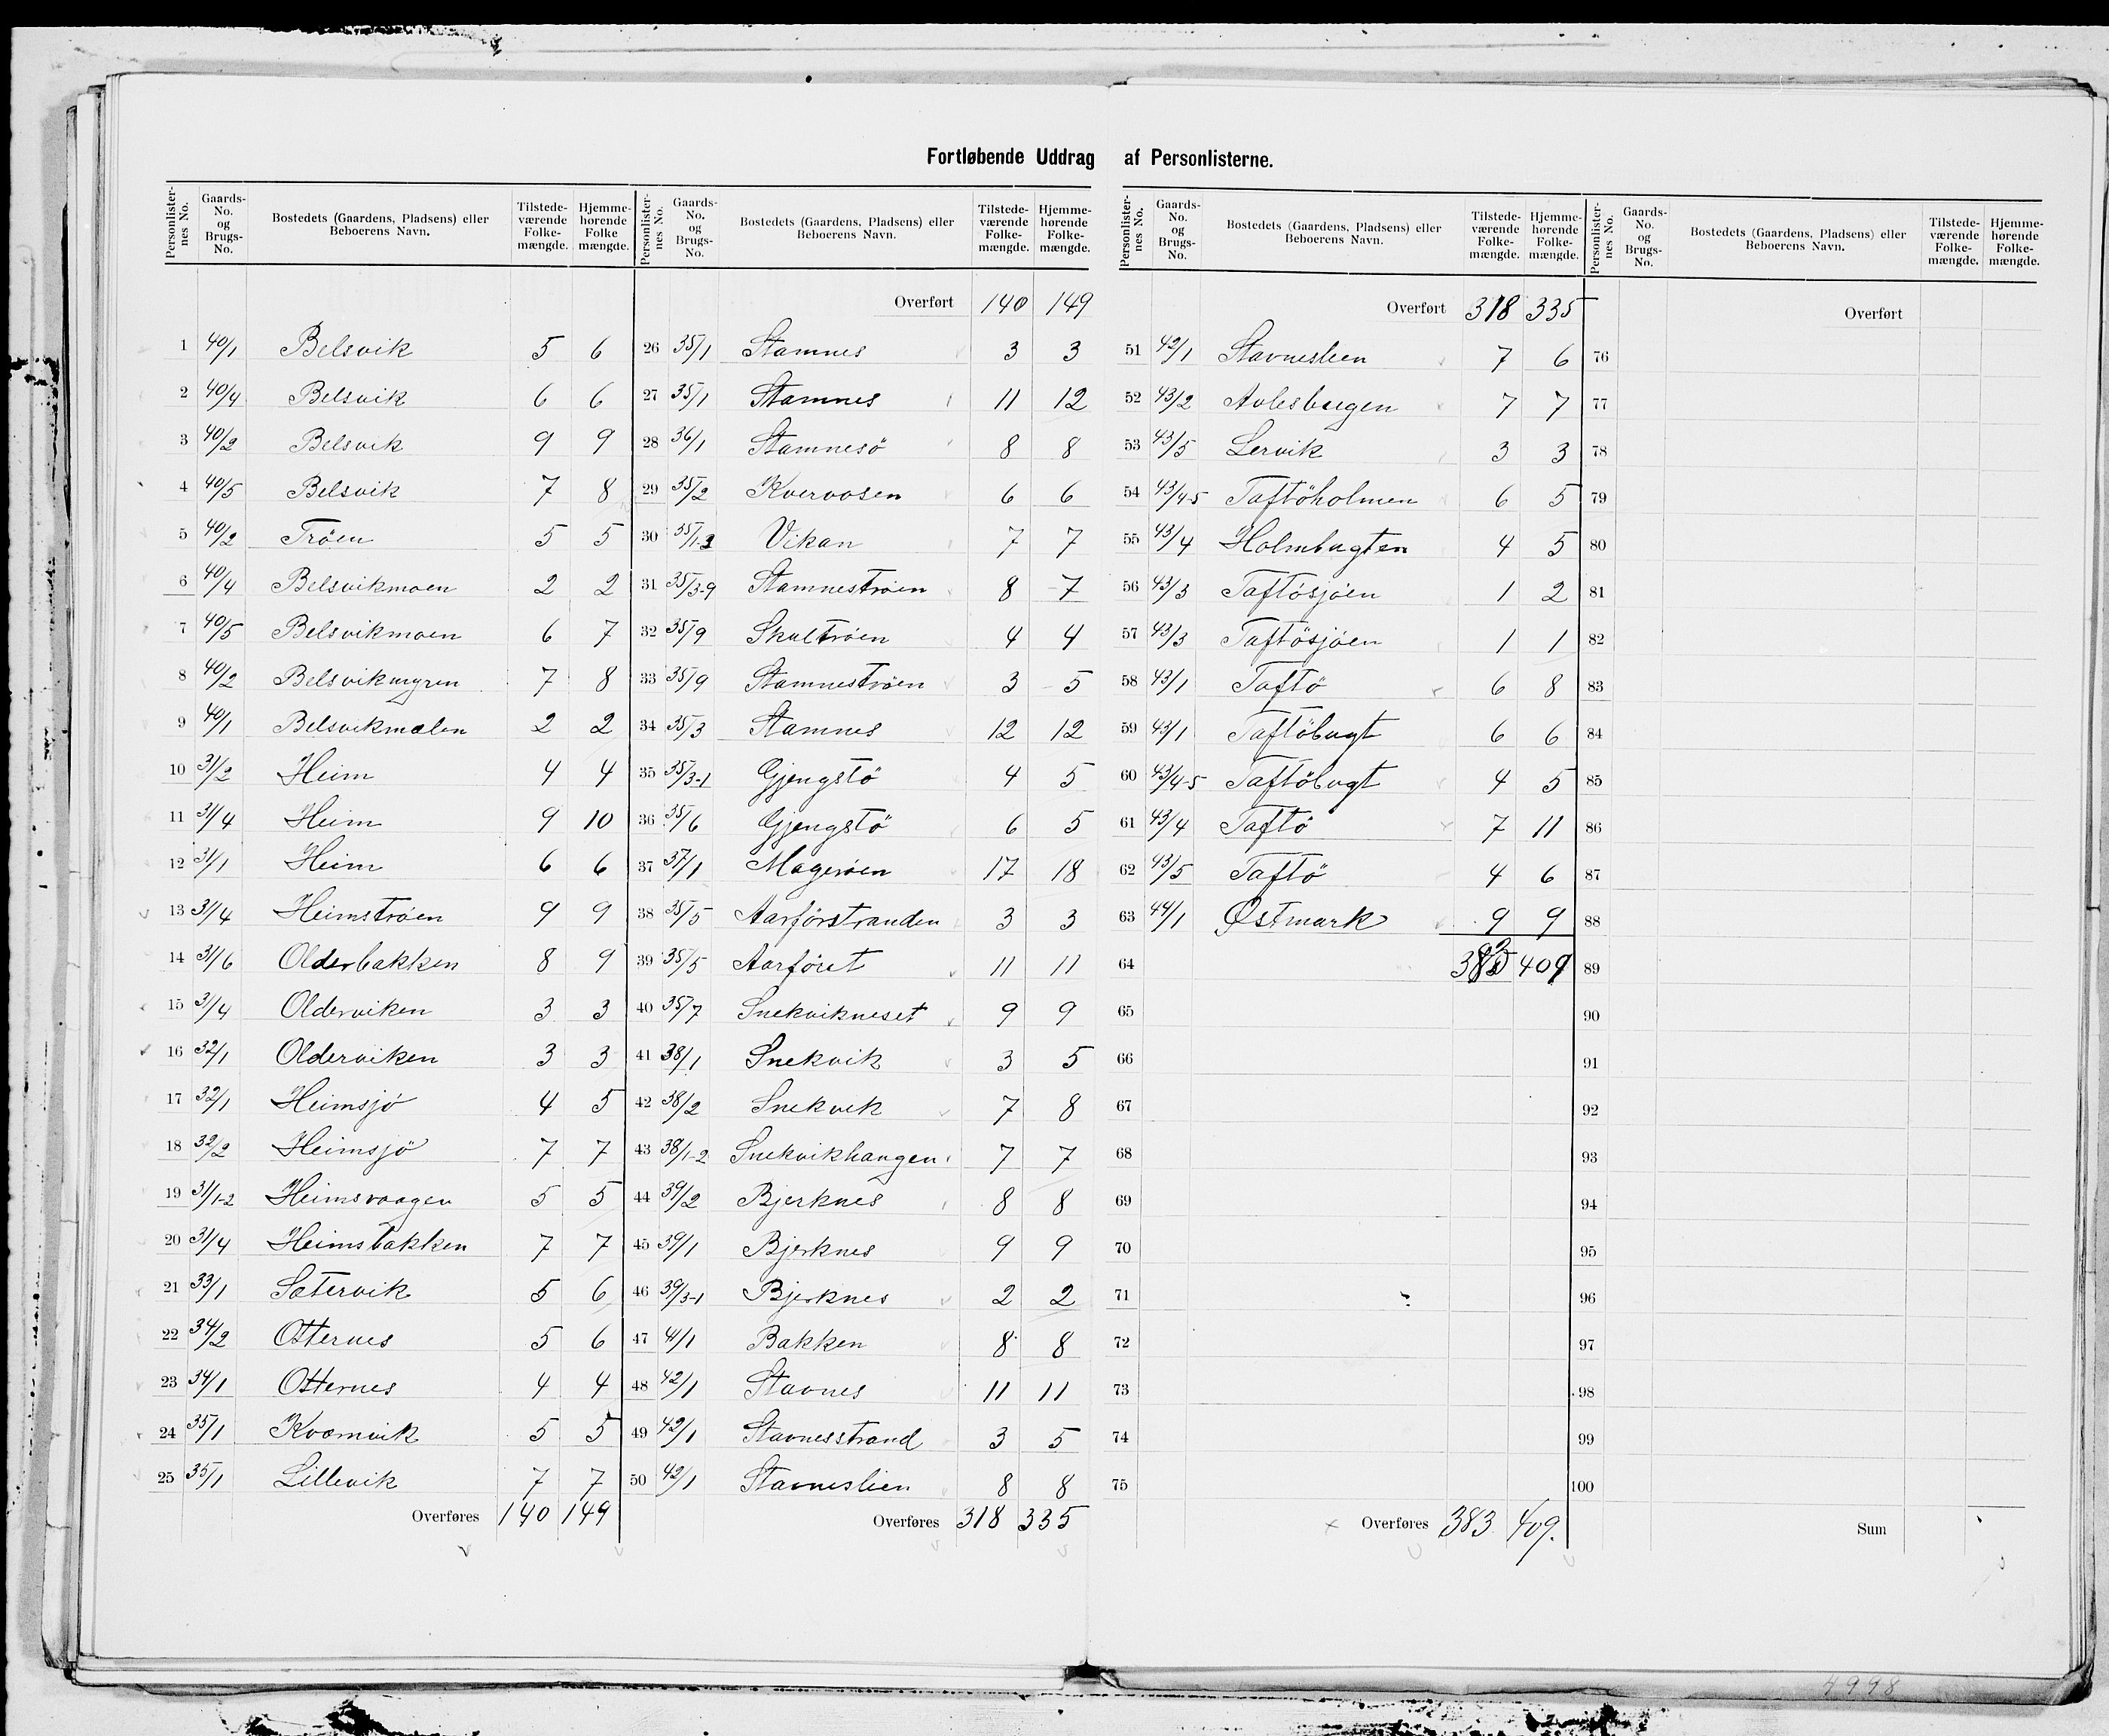 Fortløbende Uddrag af Personlisterne.
Personlisternes No. Gaards-No. og Brugs-No. Bostedets (Gaardens, Pladsens) eller Beboerens Navn. Tilstedeværende Folkemængde. Hjemmehørende Folkemængde.
1 40/1 Belsvik 5 6
2 40/4 Belsvik 6 6
3 40/2 Belsvik 9 9
4 40/5 Belsvik 7 8
5 40/2 Tröen 5 5
6 40/4 Belsvikmoen 2 2
7 40/5 Belsvikmoen 6 7
8 40/2 Belsvikmyren 7 8
9 40/1 Belsvikmælen 2 2
10 31/2 Heim 4 4
11 31/4 Heim 9 10
12 31/1 Heim 6 6
13 31/4 Heimströen 9 9
14 31/6 Olderbakken 8 9
15 31/4 Olderviken 3 3
16 32/1 Olderviken 3 3
17 32/1 Heimsjö 4 5
18 32/2 Heimsjö 7 7
19 31/1-2 Heimsvaagen 5 5
20 31/4 Heimsbakken 7 7
21 33/1 Sætervik 5 6
22 34/2 Otternes 5 6
23 34/1 Otternes 4 4
24 35/1 Kvamvik 5 5
25 35/1 Lillevik 7 7
Overføres 140 149
Personlisternes No. Gaards-No. og Brugs-No. Bostedets (Gaardens, Pladsens) eller Beboerens Navn. Tilstedeværende Folkemængde. Hjemmehørende Folkemængde.
Overført 140 149
26 35/1 Stamnes 3 3
27 35/1 Stamnes 11 12
28 36/1 Stamnesö 8 8
29 35/2 Kvervosen 6 6
30 35/1-2 Vikan 7 7
31 35/3-9 Stamneströen 8 7
32 35/9 Skultröen 4 4
33 35/9 Stamneströen 3 5
34 35/3 Stamnes 12 12
35 35/3-1 Gjengstö 4 5
36 35/6 Gjengstö 6 5
37 37/1 Mageröen 17 18
38 35/5 Aarförstranden 3 3
39 35/5 Aarföret 11 11
40 35/7 Snekvikneset 9 9
41 38/1 Snekvik 3 5
42 38/2 Snekvik 7 8
43 38/1-2 Snekvikhaugen 7 7
44 39/2 Bjerknes 8 8
45 39/1 Bjerknes 9 9
46 39/3-1 Bjerknes 2 2
47 41/1 Bakken 8 8
48 42/1 Stavnes 11 11
49 42/1 Stavnesstrand 3 5
50 42/1 Stavneslien 8 8
Overføres 318 335
Personlisternes No. Gaards-No. og Brugs-No. Bostedets (Gaardens, Pladsens) eller Beboerens Navn. Tilstedeværende Folkemængde. Hjemmehørende Folkemængde.
Overført 318 335
51 42/1 Stavneslien 7 6
52 43/2 Avlesbugen 7 7
53 43/5 Lervik 3 3
54 43/4-5 Taftöholmen 6 5
55 43/4 Holmbugten 4 5
56 43/3 Taftösjöen 1 2
57 43/3 Taftösjöen 1 1
58 43/1 Taftö 6 8
59 43/1 Taftöbugt 6 6
60 43/4-5 Taftöbugt 4 5
61 43/4 Taftö 7 11
62 43/5 Taftö 4 6
63 44/1 Østmark 9 9
64 383 409
65
66
67
68
69
70
71
72
73
74
75
Overføres 383 409.
Personlisternes No. Gaards-No. og Brugs-No. Bostedets (Gaardens, Pladsens) eller Beboerens Navn. Tilstedeværende Folkemængde. Hjemmehørende Folkemængde.
Overført
76
77
78
79
80
81
82
83
84
85
86
87
88
89
90
91
92
93
94
95
96
97
98
99
100
Sum
4998